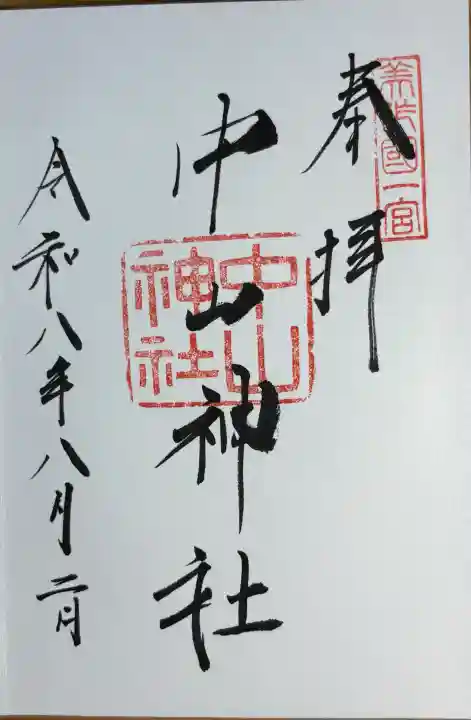 奉拝
美作國一宮
中山神社
中山神社
令和八年八月二日